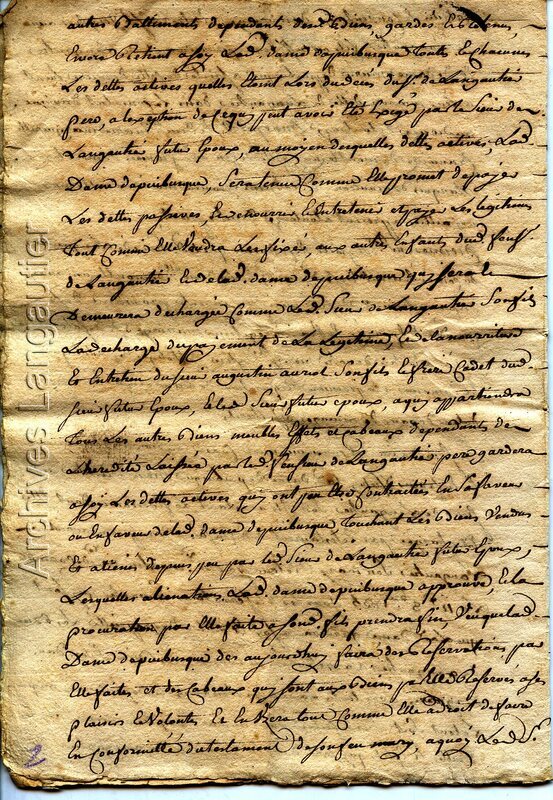 autres Battiments dependents desd. Biens, gardés Et Retenus,
Envers Et tient a soy Lad. dame depuibusque Toutes Et Chacunes
Les dettes actives quelles Etoint Lors du deces dud. Sr. de Langautier
pere, a lexeption de Ce qui peut avoir Eté Exigé par le Sieur de
Langautier futur Epoux, au moyen desquelles dettes actives, Lad.
Dame depuibusque, Sera tenue Comme Elle promet de payer
Les dettes passives, Et de nourrir Et Entretenir et payer Les legitimes
Tout Comme Elle Voudra Les fixer, aux autres Enfants dud. feu Sr.
de Langautier Et de lad. dame depuibusque quy sera Et
Demeurera dechargée Comme Led. Sieur de Langautier Son fils
La decharge du payement de La Legitime, Et de la nourriture
Et Entretien du sieur augustin auriol Son fils Et frere Cadet dud.
sieur futur Epoux, Et led. Sieur futur epoux, a quy appartiendra
Tous Les autres Biens meubles Effets et Cabeaux dependents de
Lheredité Laissée par led. feu sieur de Langautier pere gardera
a soy Les dettes actives quy ont peu Etre Contractées En Sa faveur
ou En faveur de lad. dame depuibusque Touchant Les Biens Vendus
Et alienés depuis peu par led. Sieur de Langautier futur Epoux,
Lesquelles alienations Lad. dame depuibusque approuve, Et la
procuration par Elle faite a sond. fils prendra fin, Veu que lad.
Dame depuibusque des aujourdhuy faira des Reservations par
Elle faites et des Cabeaux quy sont aux Biens par Elle Reservés a ses
plaisirs Et Volontés, Et En Usera tout Comme Elle a droit de faire
En Conformitté du testament de son feu mary, a quoy Led. Sr.
Archives Langautier